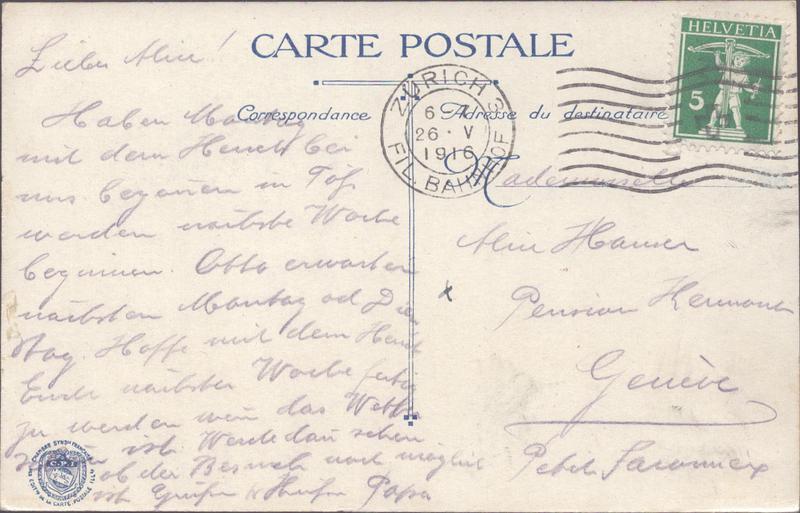 CARTE POSTALE
Correspondance
Adresse du destinataire
HELVETIA
5
ZÜRICH 3
FIL. BAHNHOF
26 · V
1916
Lieber Alice!
Haben Montag
mit dem Heuen bei
uns begonnen in Töss
werden nächste Woche
beginnen. Otto erwarten
nächsten Montag od Diens
tag. Hoffe mit dem Heuet
Ende nächster Woche fertig
zu werden wenn das Wetter
ist. Werde dann sehen
ob der Besuch noch möglich
ist Grüsse & Küsse Papa
Mademoiselle
Alice Hauser
Pension
Genève
Petit Saconnex